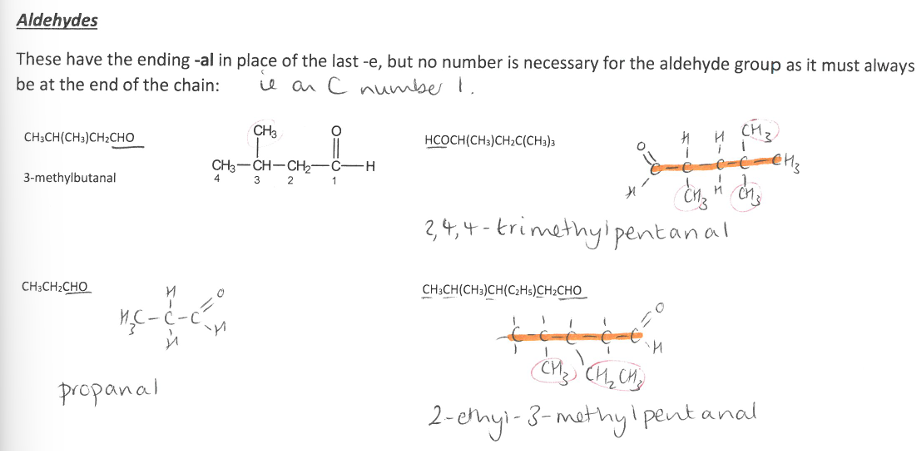 Aldehydes
These have the ending -al in place of the last -e, but no number is necessary for the aldehyde group as it must always
be at the end of the chain: ie on C number 1.
CH₃CH(CH₃)CH₂CHO
CH₃ O
CH₃—CH—CH₂—C—H
4 3 2 1
3-methylbutanal
HCOCH(CH₃)CH₂C(CH₃)₃
O H H CH₃
C-C-C-C-CH₃
H CH₃ H CH₃
2,4,4-trimethylpentanal
CH₃CH₂CHO
H O
H₃C-C-C
H H
propanal
CH₃CH(CH₃)CH(C₂H₅)CH₂CHO
O
-C-C-C-C-C
H
CH₃ CH₂CH₃
2-ethyl-3-methylpentanal